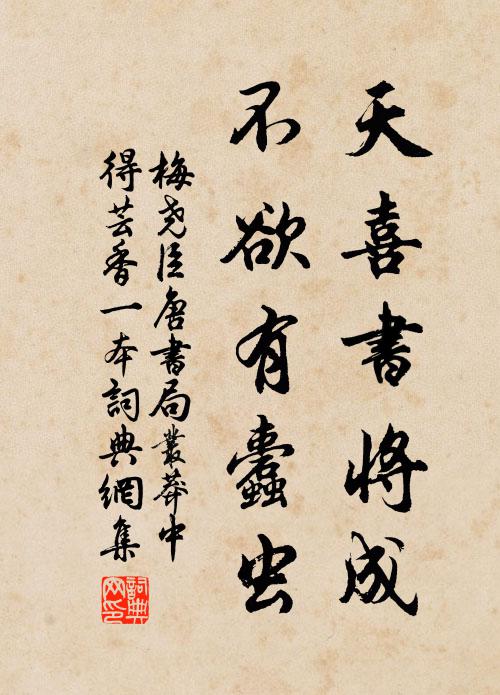 天喜書將成
不欲有蠹虫
梅尭臣唐書局叢莽中
得芸香一本詞典網集
詞典网印